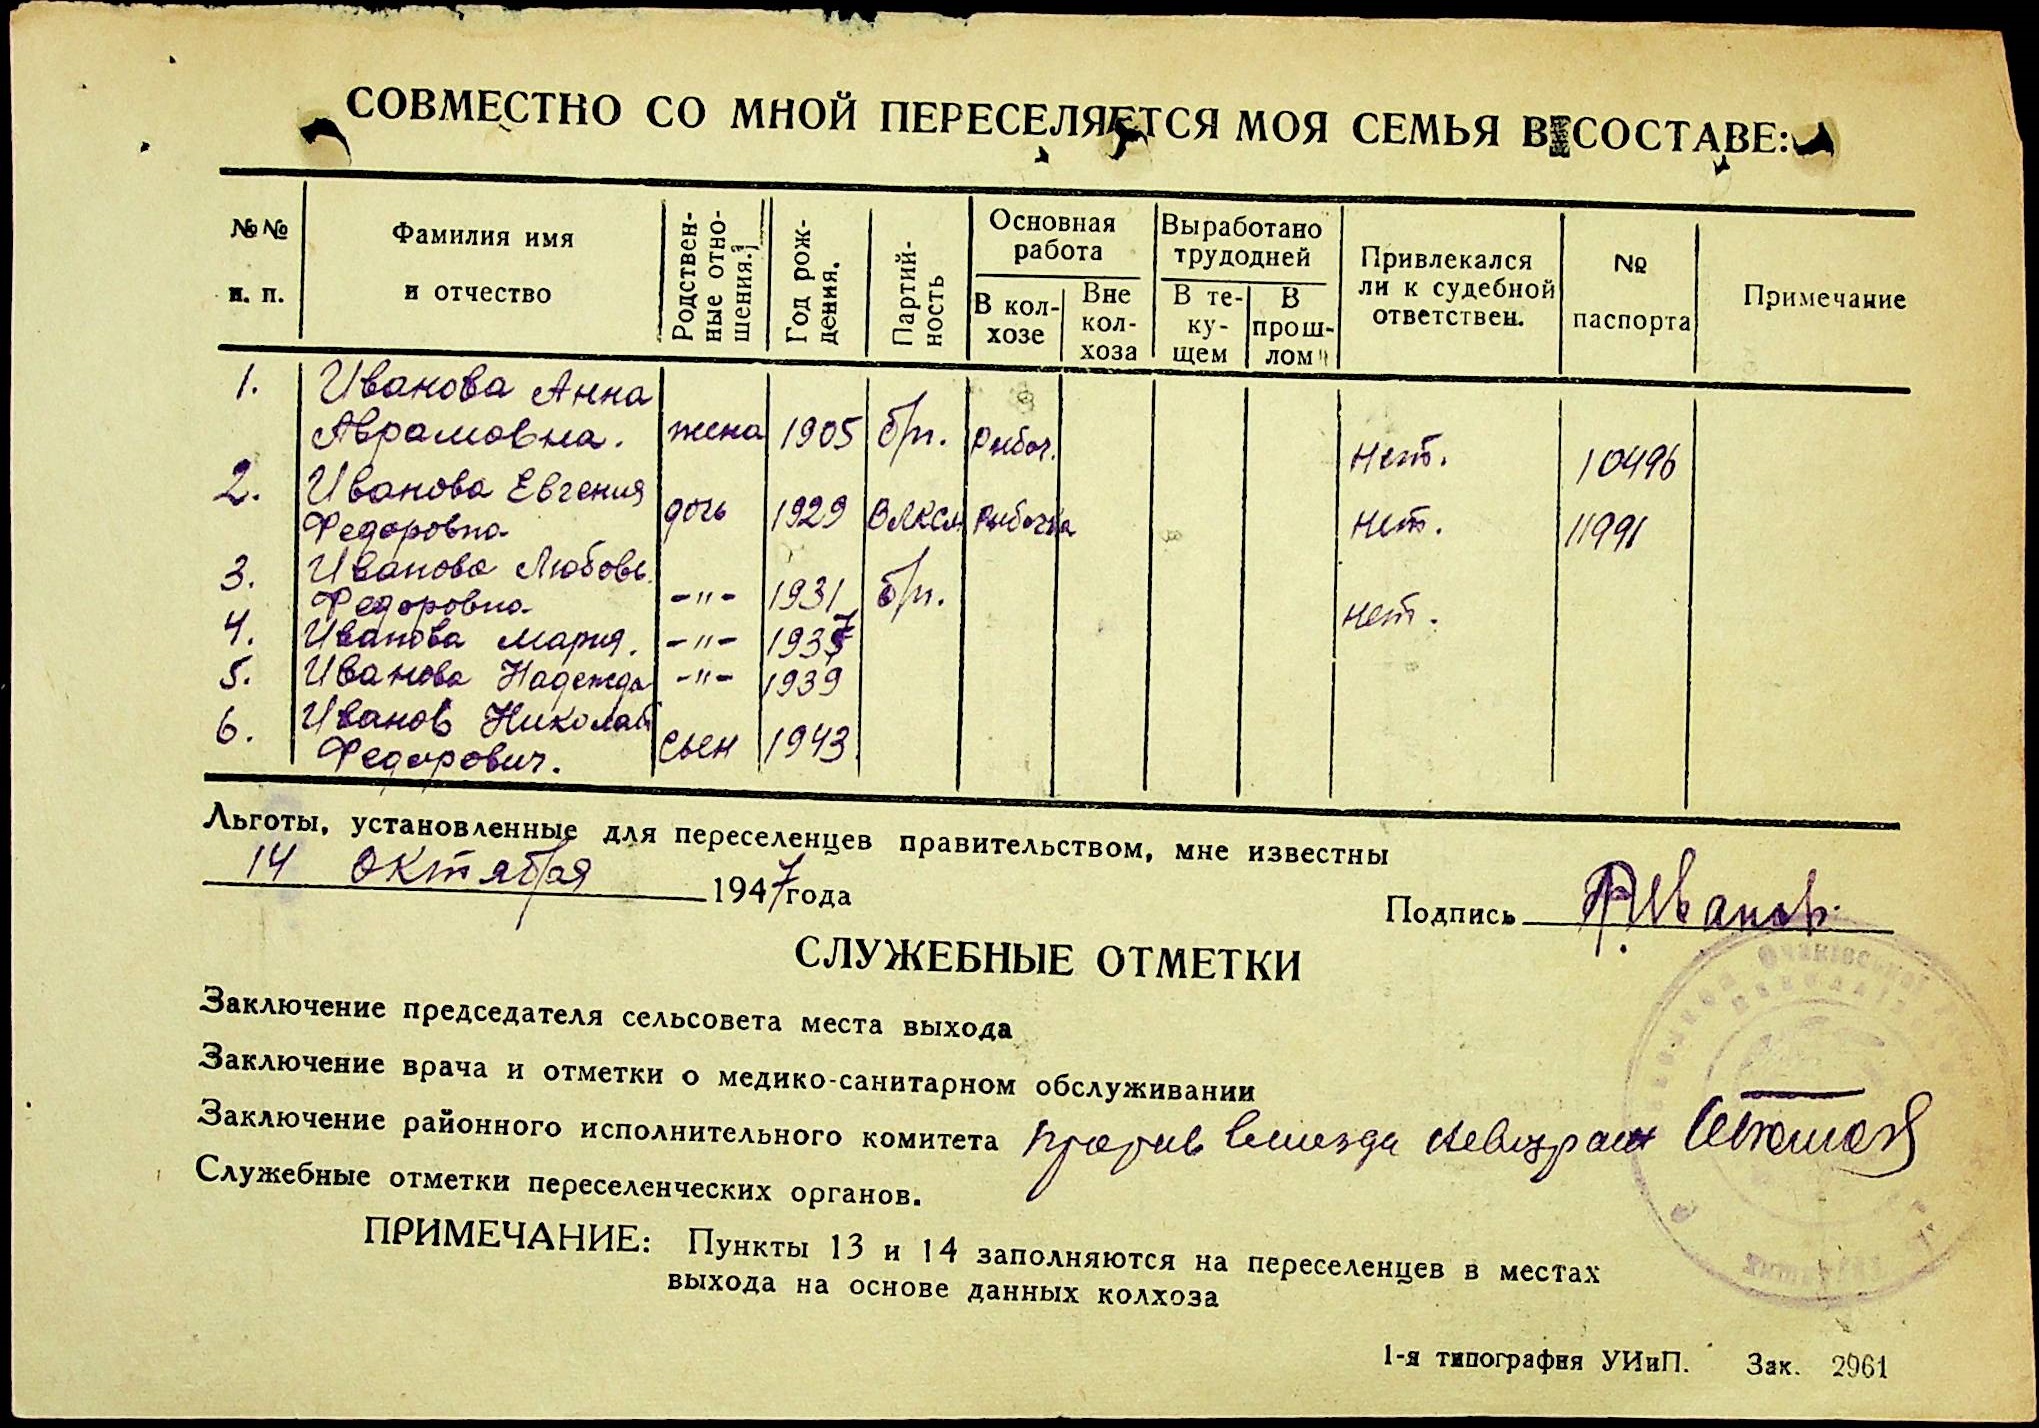 СОВМЕСТНО СО МНОЙ ПЕРЕСЕЛЯЕТСЯ МОЯ СЕМЬЯ В СОСТАВЕ:
№№ п. п. Фамилия имя и отчество Родственные отношения. Год рождения. Партийность Основная работа В колхозе Вне колхоза Выработано трудодней В текущем В прошлом Привлекался ли к судебной ответствен. № паспорта Примечание
1. Иванова Анна
Аврамовна. жена 1905 б/п. Рыбач. Нет. 10496
2. Иванова Евгения
Федоровна дочь 1929 ВЛКСМ Рыбачка Нет. 11991
3. Иванова Любовь
Федоровна -"- 1931 б/п. Нет.
4. Иванова Мария. -"- 1937
5. Иванова Надежда -"- 1939
6. Иванов Николай
Федорович. сын 1943
Льготы, установленные для переселенцев правительством, мне известны
14 октября 1947 года
Подпись Ф. Иванов.
СЛУЖЕБНЫЕ ОТМЕТКИ
Заключение председателя сельсовета места выхода
Заключение врача и отметки о медико-санитарном обслуживании
Заключение районного исполнительного комитета против выезда
Служебные отметки переселенческих органов.
ПРИМЕЧАНИЕ: Пункты 13 и 14 заполняются на переселенцев в местах
выхода на основе данных колхоза
1-я типография УИиП. Зак. 2961